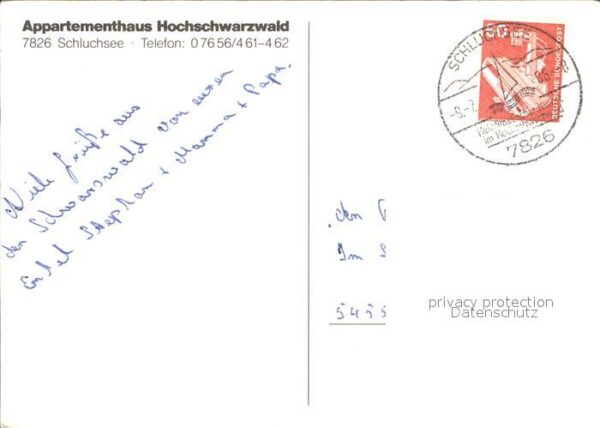 Appartementhaus Hochschwarzwald
7826 Schluchsee · Telefon: 0 76 56/4 61–4 62
Viele Grüße aus
den Schwarzwald von euren
Enkel Stephan + Mamma + Papa.
SCHLUC
60
DEUTSCHE BUNDESPOST
7826
den
Im S
5455
privacy protection
Datenschutz